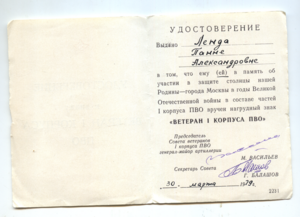 УДОСТОВЕРЕНИЕ
Выдано Ленда
Ганне
Александровне
в том, что ему (ей) в память об
участии в защите столицы нашей
Родины—города Москвы в годы Великой
Отечественной войны в составе частей
I корпуса ПВО вручен нагрудный знак
«ВЕТЕРАН I КОРПУСА ПВО»
Председатель
Совета ветеранов
I корпуса ПВО
генерал-майор артиллерии
М. ВАСИЛЬЕВ
Секретарь Совета
Г. БАЛАШОВ
30 марта 1979г.
2331